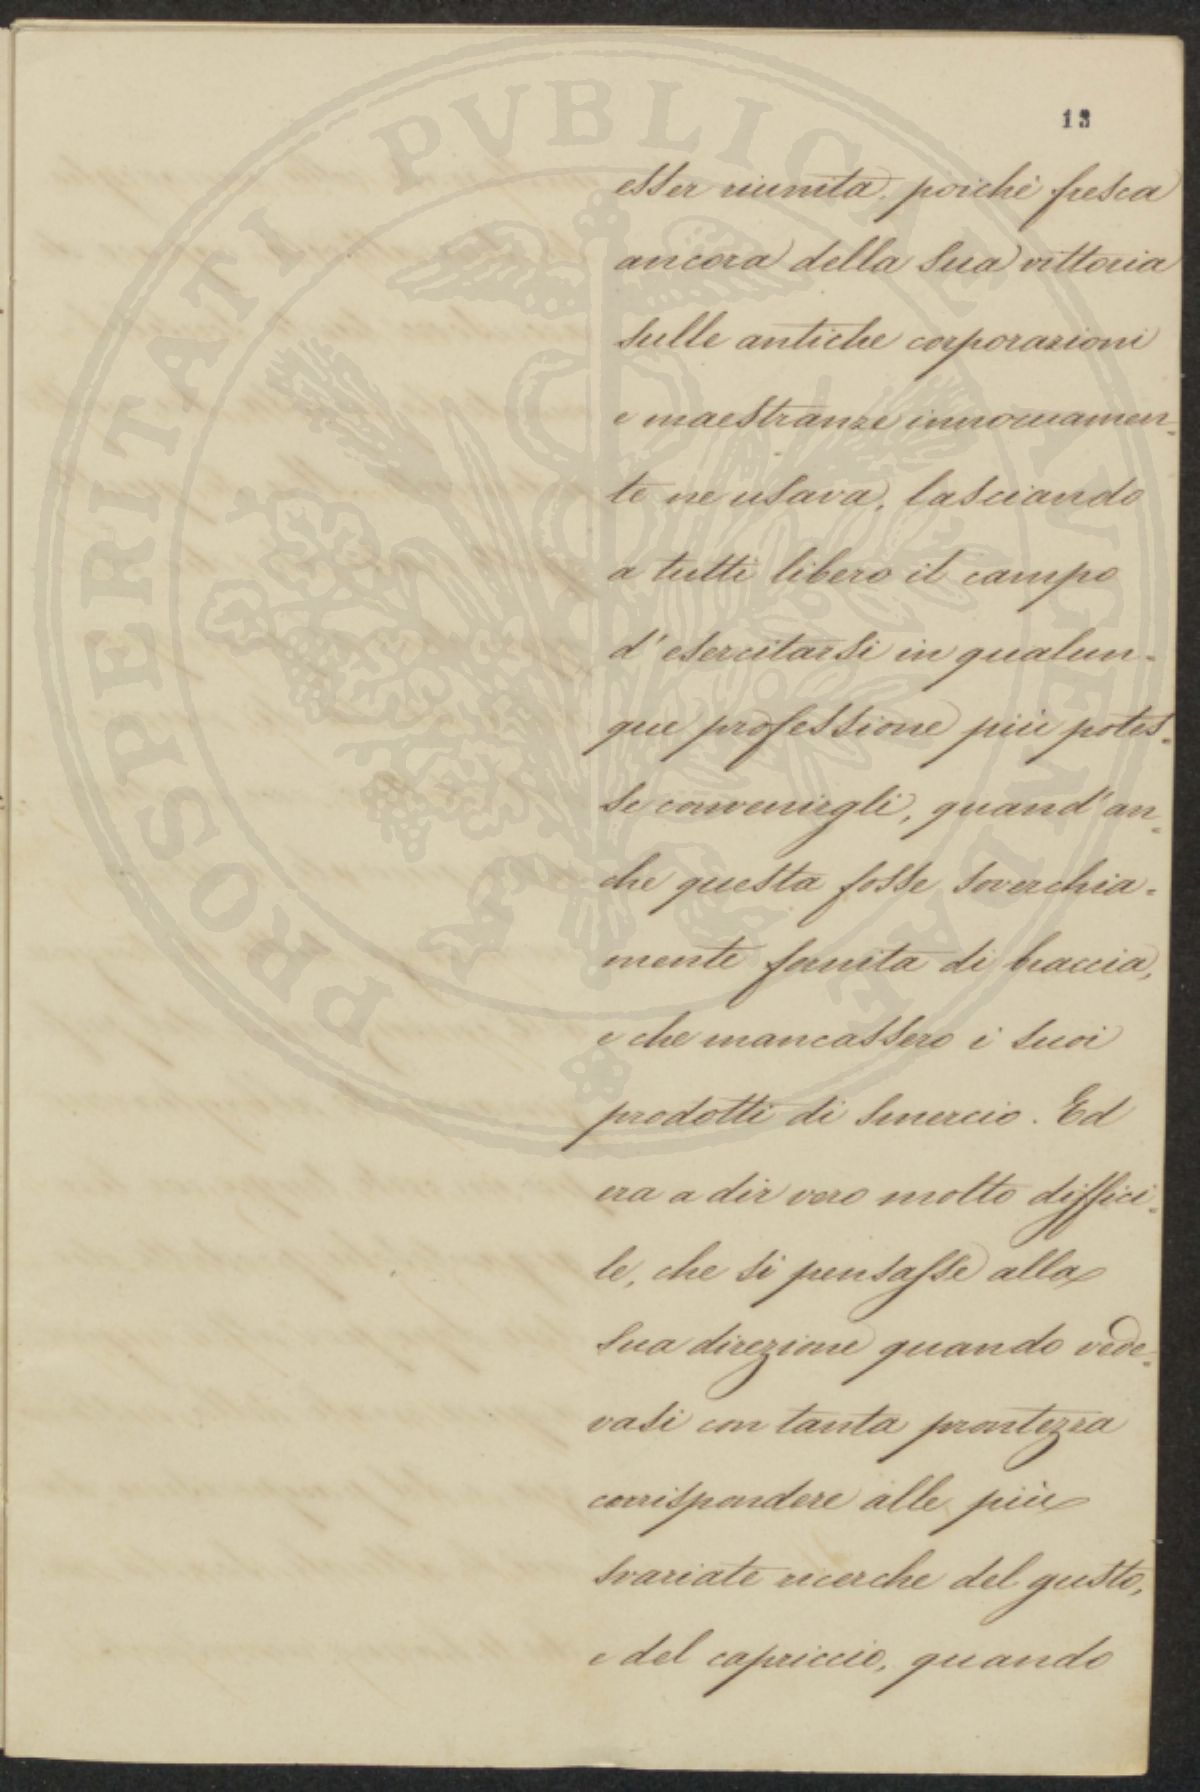 13
esser riunita, poichè fresca
ancora della sua vittoria
sulle antiche corporazioni
e maestranze innocuamen-
te ne usava, lasciando
a tutti libero il campo
d'esercitarsi in qualun-
que professione più potes-
se convenirgli, quand'an-
che questa fosse soverchia-
mente fornita di braccia,
e che mancassero i suoi
prodotti di smercio. Ed
era a dir vero molto diffici-
le, che si pensasse alla
sua direzione quando vede-
vasi con tanta prontezza
corrispondere alle più
svariate ricerche del gusto,
e del capriccio, quando
PROSPERITATI PVBLICAE AVGENDAE